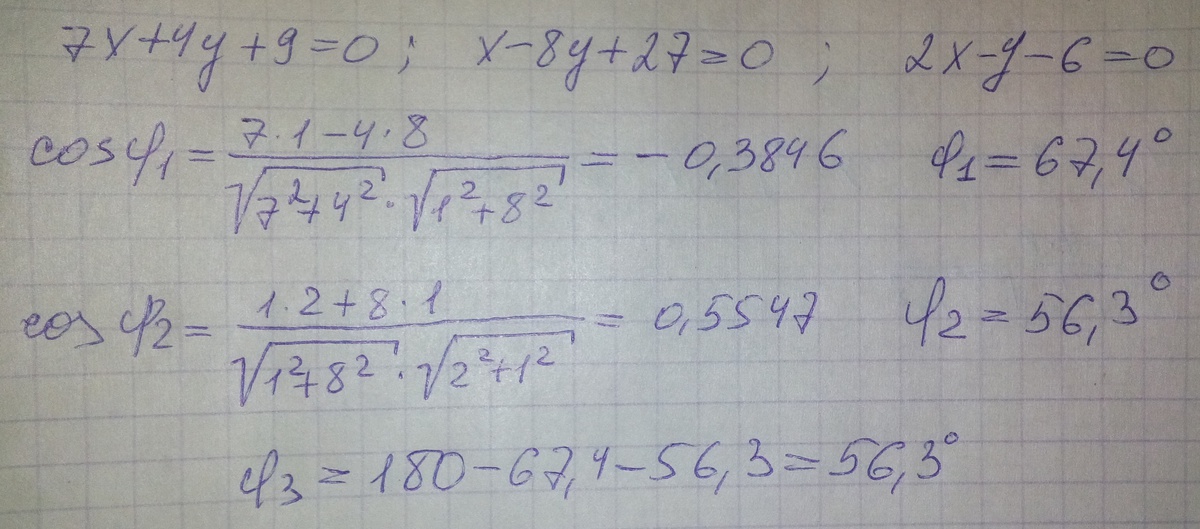 7x+4y+9=0; x-8y+27=0; 2x-y-6=0
cosφ₁ = (7·1-4·8)/(√(7²+4²)·√(1²+8²)) = -0,3846 φ₁=67,4°
cosφ₂ = (1·2+8·1)/(√(1²+8²)·√(2²+1²)) = 0,5547 φ₂=56,3°
φ₃=180-67,4-56,3=56,3°